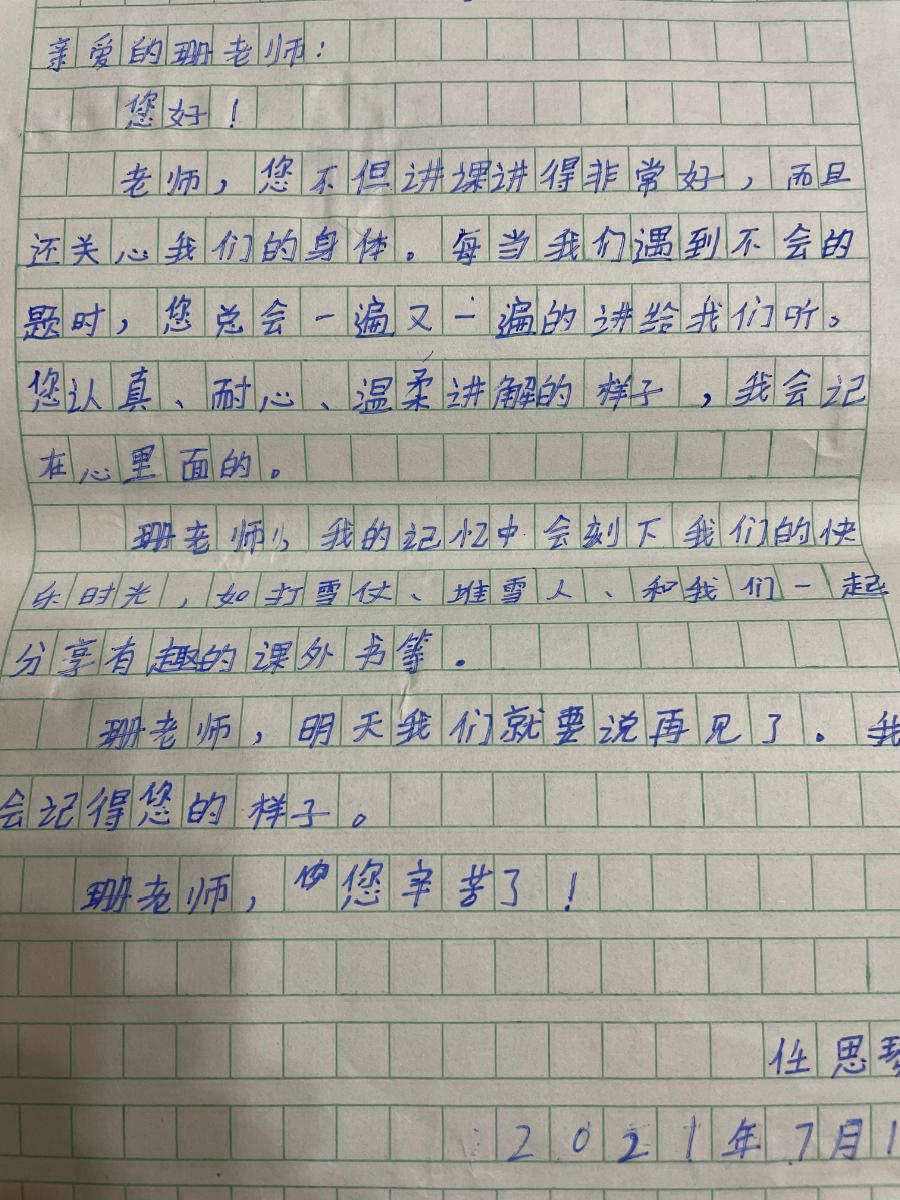 亲爱的珊老师：
您好！
老师，您不但讲课讲得非常好，而且
还关心我们的身体。每当我们遇到不会的
题时，您总会一遍又一遍的讲给我们听。
您认真、耐心、温柔讲解的样子，我会记
在心里面的。
珊老师，我的记忆中会刻下我们的快
乐时光，如打雪仗、堆雪人、和我们一起
分享有趣的课外书等。
珊老师，明天我们就要说再见了。我
会记得您的样子。
珊老师，您辛苦了！
任思琴
2021年7月1